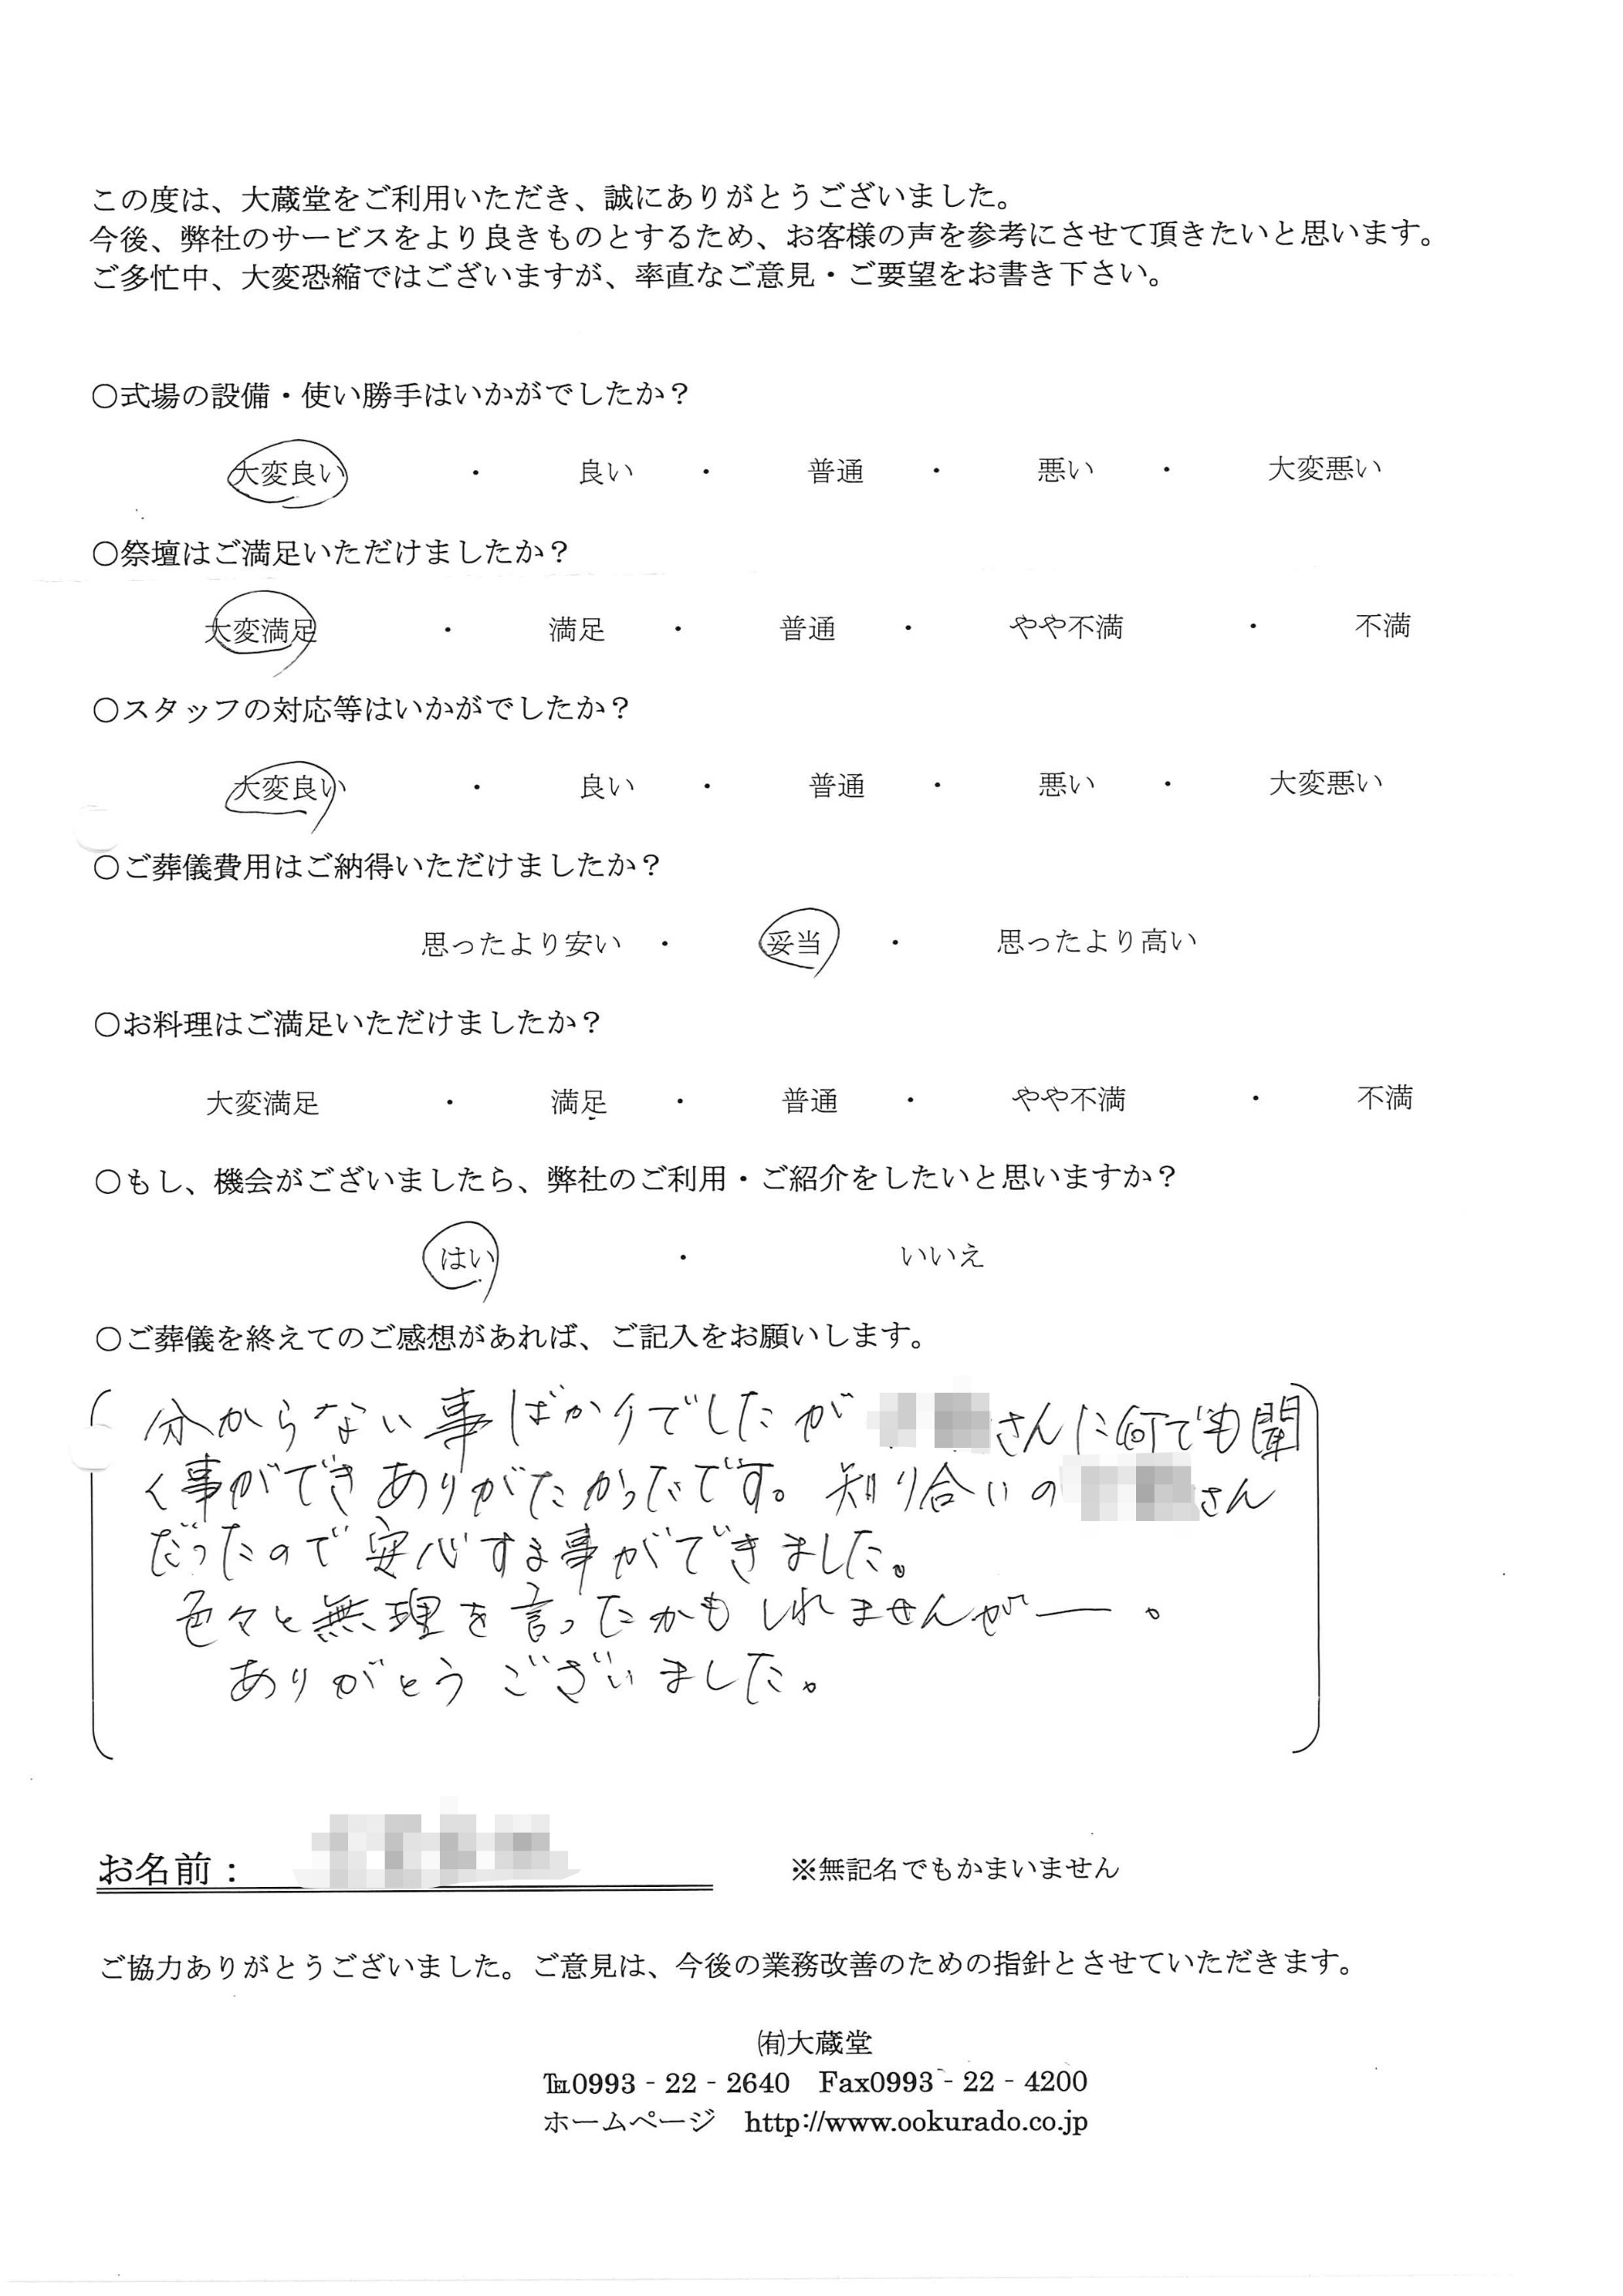 この度は、大蔵堂をご利用いただき、誠にありがとうございました。
今後、弊社のサービスをより良きものとするため、お客様の声を参考にさせて頂きたいと思います。
ご多忙中、大変恐縮ではございますが、率直なご意見・ご要望をお書き下さい。
○式場の設備・使い勝手はいかがでしたか？
大変良い ・ 良い ・ 普通 ・ 悪い ・ 大変悪い
○祭壇はご満足いただけましたか？
大変満足 ・ 満足 ・ 普通 ・ やや不満 ・ 不満
○スタッフの対応等はいかがでしたか？
大変良い ・ 良い ・ 普通 ・ 悪い ・ 大変悪い
○ご葬儀費用はご納得いただけましたか？
思ったより安い ・ 妥当 ・ 思ったより高い
○お料理はご満足いただけましたか？
大変満足 ・ 満足 ・ 普通 ・ やや不満 ・ 不満
○もし、機会がございましたら、弊社のご利用・ご紹介をしたいと思いますか？
はい ・ いいえ
○ご葬儀を終えてのご感想があれば、ご記入をお願いします。
分からない事ばかりでしたが さんに何でも聞
く事ができありがたかったです。知り合いの さん
だったので安心する事ができました。
色々と無理を言ったかもしれませんが―。
ありがとうございました。
お名前： ※無記名でもかまいません
ご協力ありがとうございました。ご意見は、今後の業務改善のための指針とさせていただきます。
㈲大蔵堂
℡0993‐22‐2640 Fax0993‐22‐4200
ホームページ http://www.ookurado.co.jp